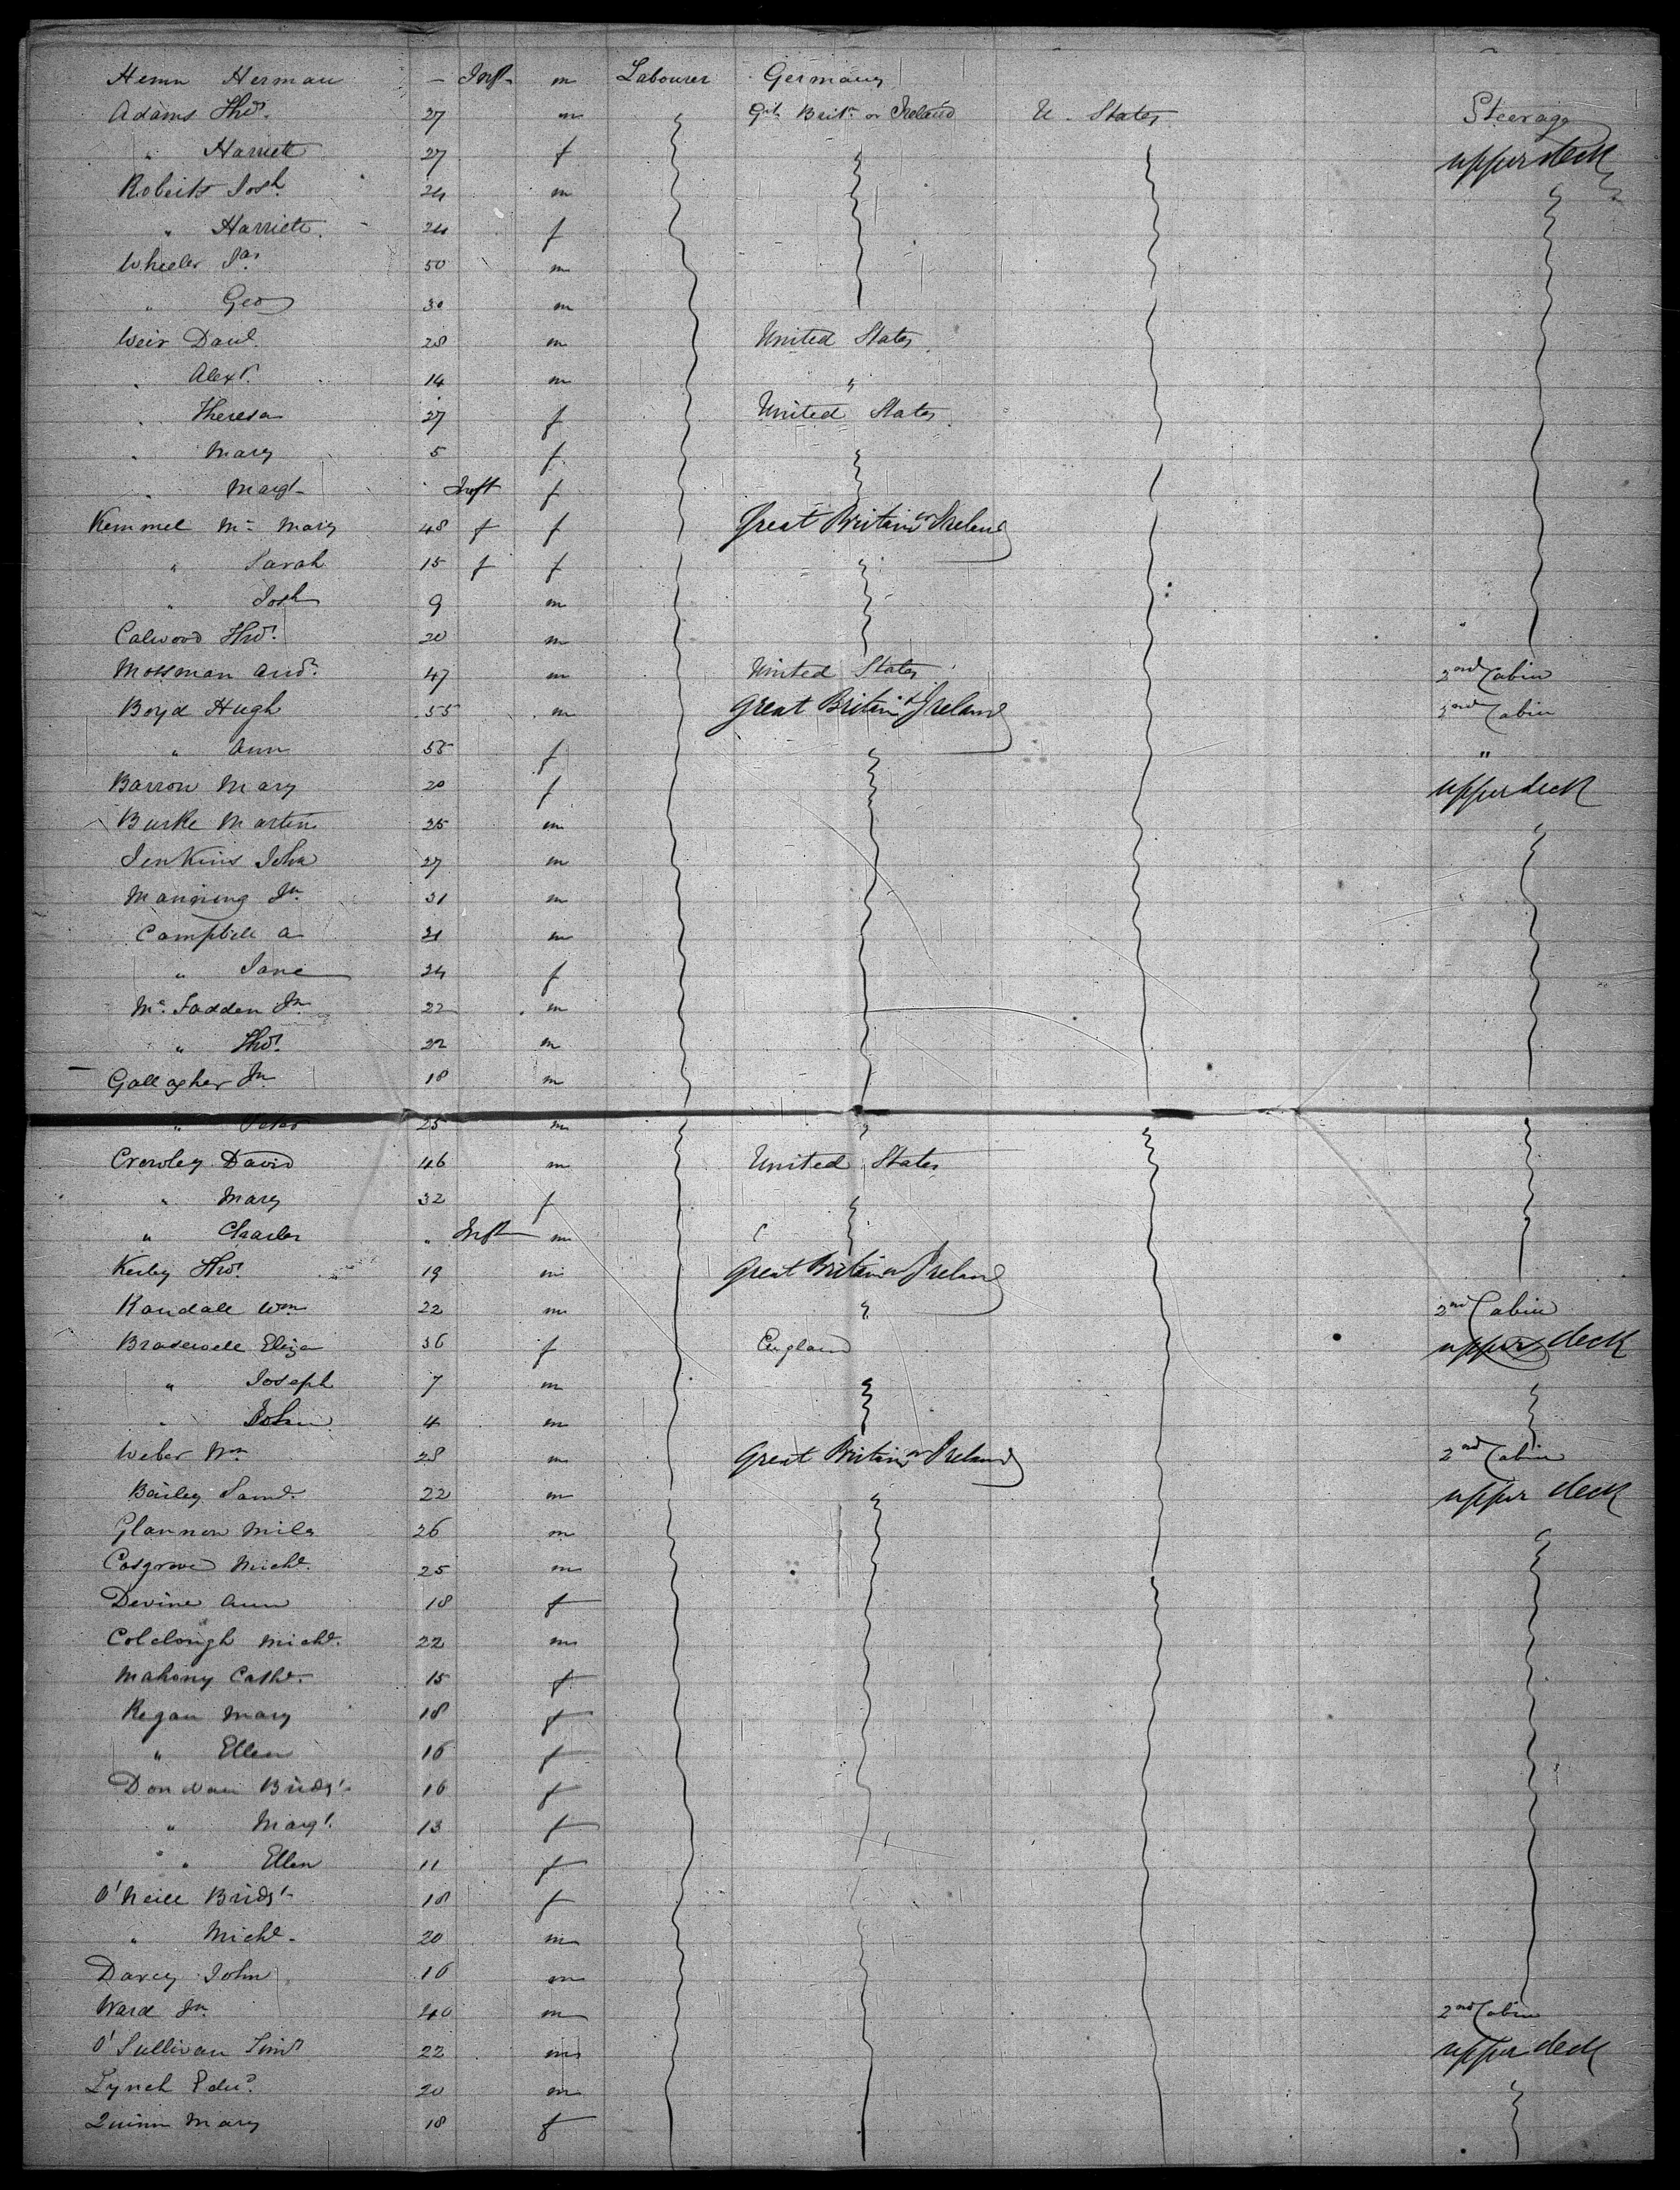 Hemn Herman — Inft m Labourer Germany
Adams Thos. 27 m Gt. Britn. or Ireland U. States Steerage
" Harriett 27 f upper deck
Roberts Josh. 24 m
" Harriett 24 f
Wheeler Jas 50 m
" Geo 30 m
Weir Danl. 28 m United States
" Alexr. 14 m "
" Theresa 27 f United States
" Mary 5 f
" Margt Inft f
Kemmel Mc Mary 48 f f Great Britain or Ireland
" Sarah 15 f f
" Josh 9 m
Calwood Thos. 20 m "
Mossman Andw. 47 m United States 2nd Cabin
Boyd Hugh 55 m Great Britain & Ireland 2nd Cabin
" Ann 55 f "
Barron Mary 20 f upper deck
Burke Martin 25 m
Jenkins John 27 m
Manning Jn. 31 m
Campbell A 31 m
" Jane 24 f
Mc Fadden Jn 22 m
" Thos. 22 m
Gallagher Jn 18 m
" Peter 25 m
Crowley David 46 m United States
" Mary 32 f
" Charles " Inft m
Kerby Thos. 19 m Great Britain or Ireland
Randall Wm 22 m " 2nd Cabin
Brasewell Eliza 36 f England upper deck
" Joseph 7 m
" John 4 m
Weber Wm 28 m Great Britain or Ireland 2nd Cabin
Bailey Saml. 22 m upper deck
Glannon Mila 26 m
Cosgrove Michl. 25 m
Devine Ann 18 f
Colclough Michl. 22 m
Mahony Cathe. 15 f
Regan Mary 18 f
" Ellen 16 f
Donovan Bridgt 16 f
" Margt. 13 f
" Ellen 11 f
O'Neill Bridgt 18 f
" Michl. 20 m
Darcy John 16 m
Ward Jn 40 m 2nd Cabin
O'Sullivan Timo 22 m upper deck
Lynch Edwd. 20 m
Quinn Mary 18 f